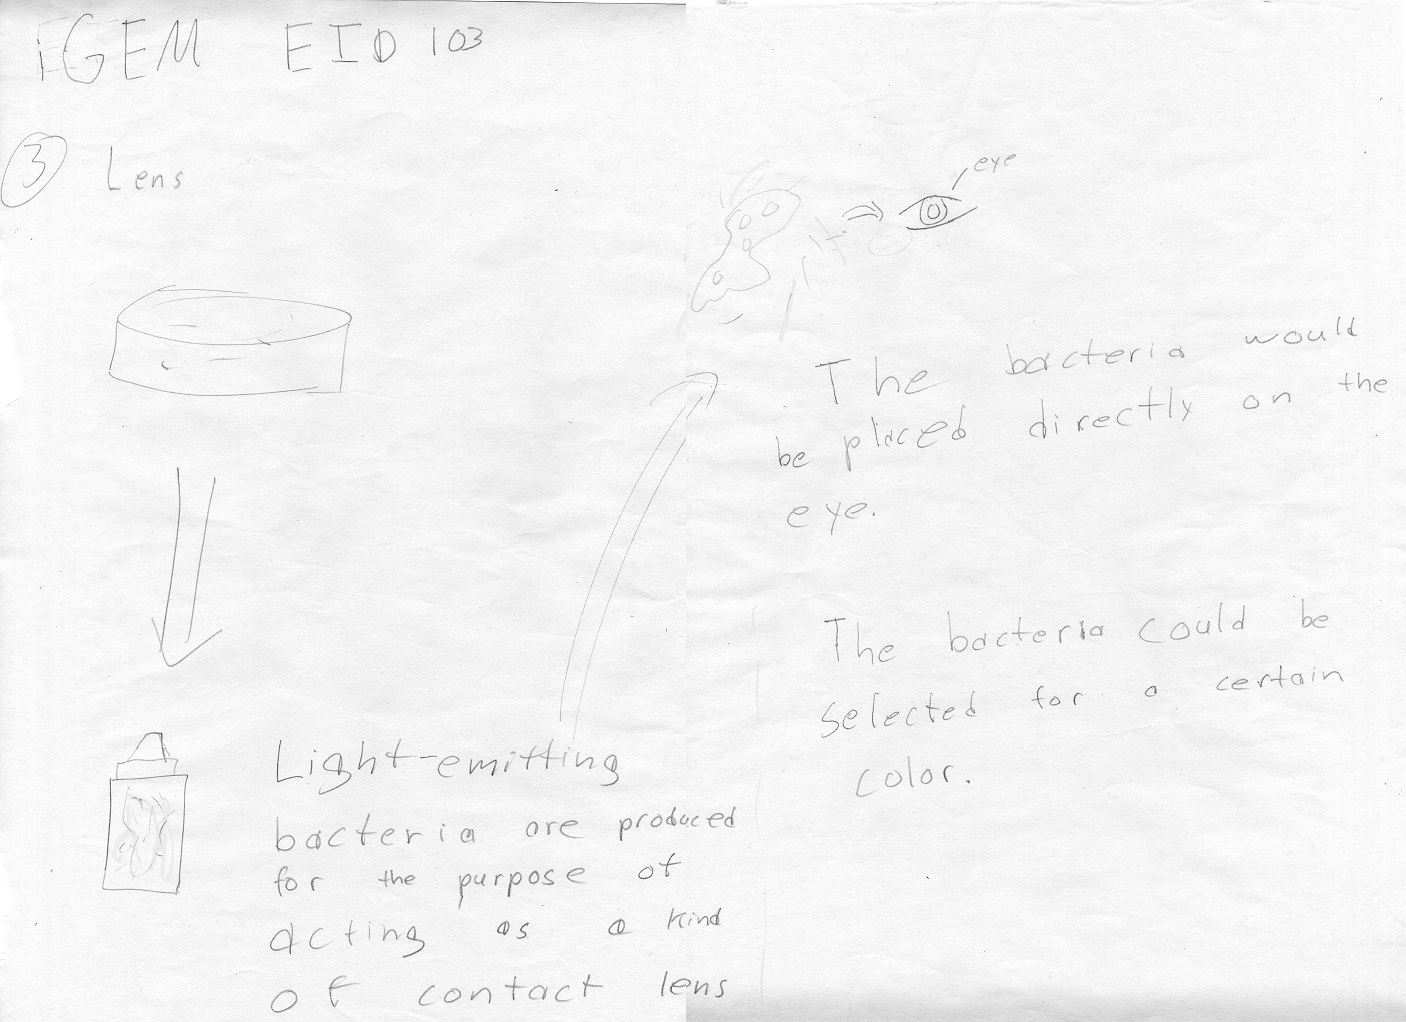 iGEM EID 103
3 Lens
Light-emitting
bacteria are produced
for the purpose of
acting as a kind
of contact lens
eye
The bacteria would
be placed directly on the
eye.
The bacteria could be
selected for a certain
color.